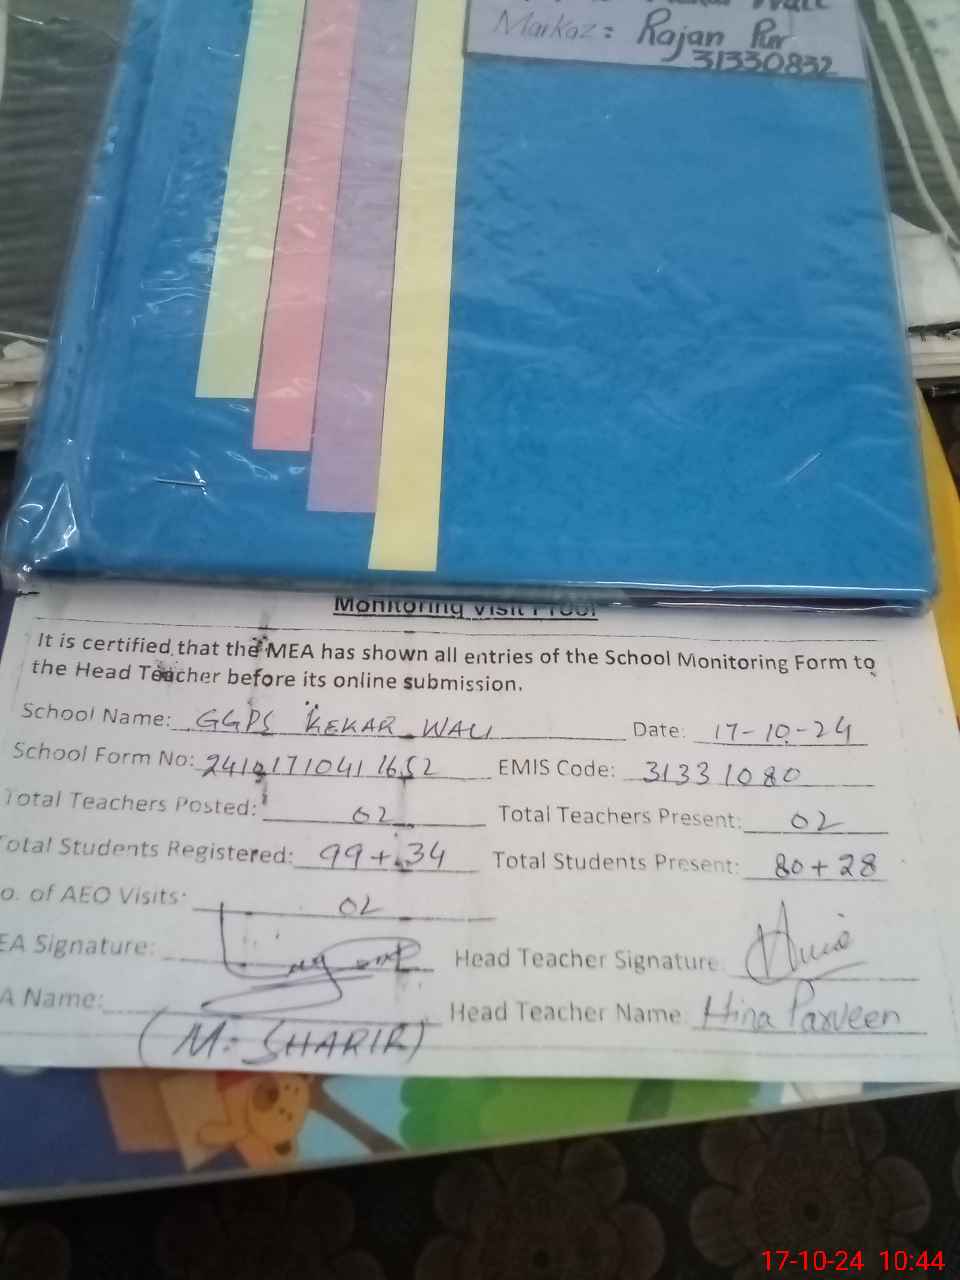 Markaz: Rajan Pur
31330832
Monitoring Visit Proof
It is certified that the MEA has shown all entries of the School Monitoring Form to
the Head Teacher before its online submission.
School Name: GGPS KEKAR WALI Date: 17-10-24
School Form No: 24101710411652 EMIS Code: 31331080
Total Teachers Posted: 02 Total Teachers Present: 02
Total Students Registered: 99+34 Total Students Present: 80+28
o. of AEO Visits: 02
EA Signature: Head Teacher Signature:
A Name: Head Teacher Name Hina Parveen
(M. SHARIR)
17-10-24 10:44